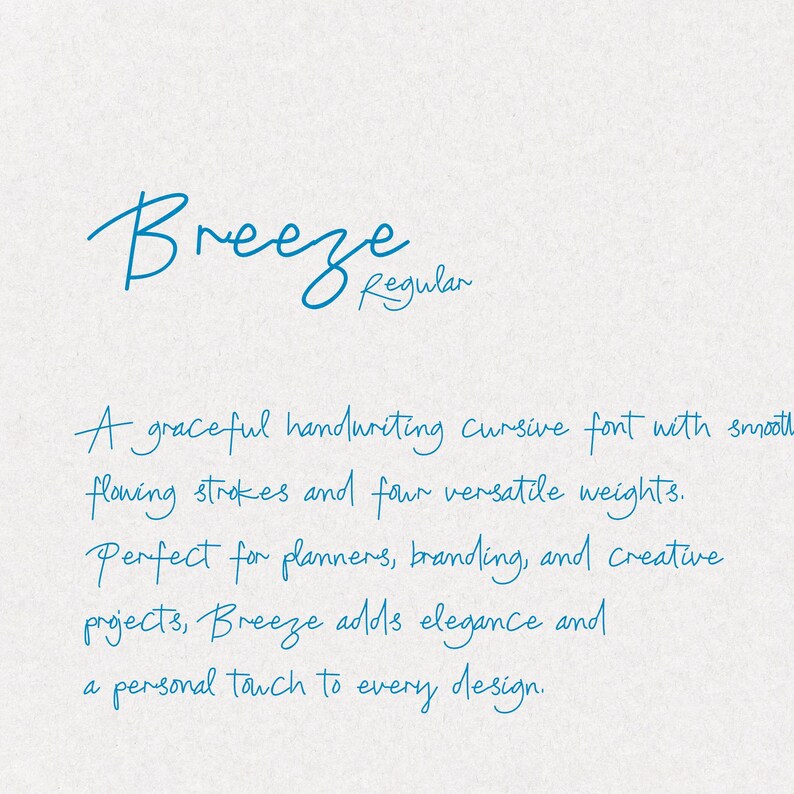 Breeze
Regular
A graceful handwriting cursive font with smooth
flowing strokes and four versatile weights.
Perfect for planners, branding, and creative
projects, Breeze adds elegance and
a personal touch to every design.